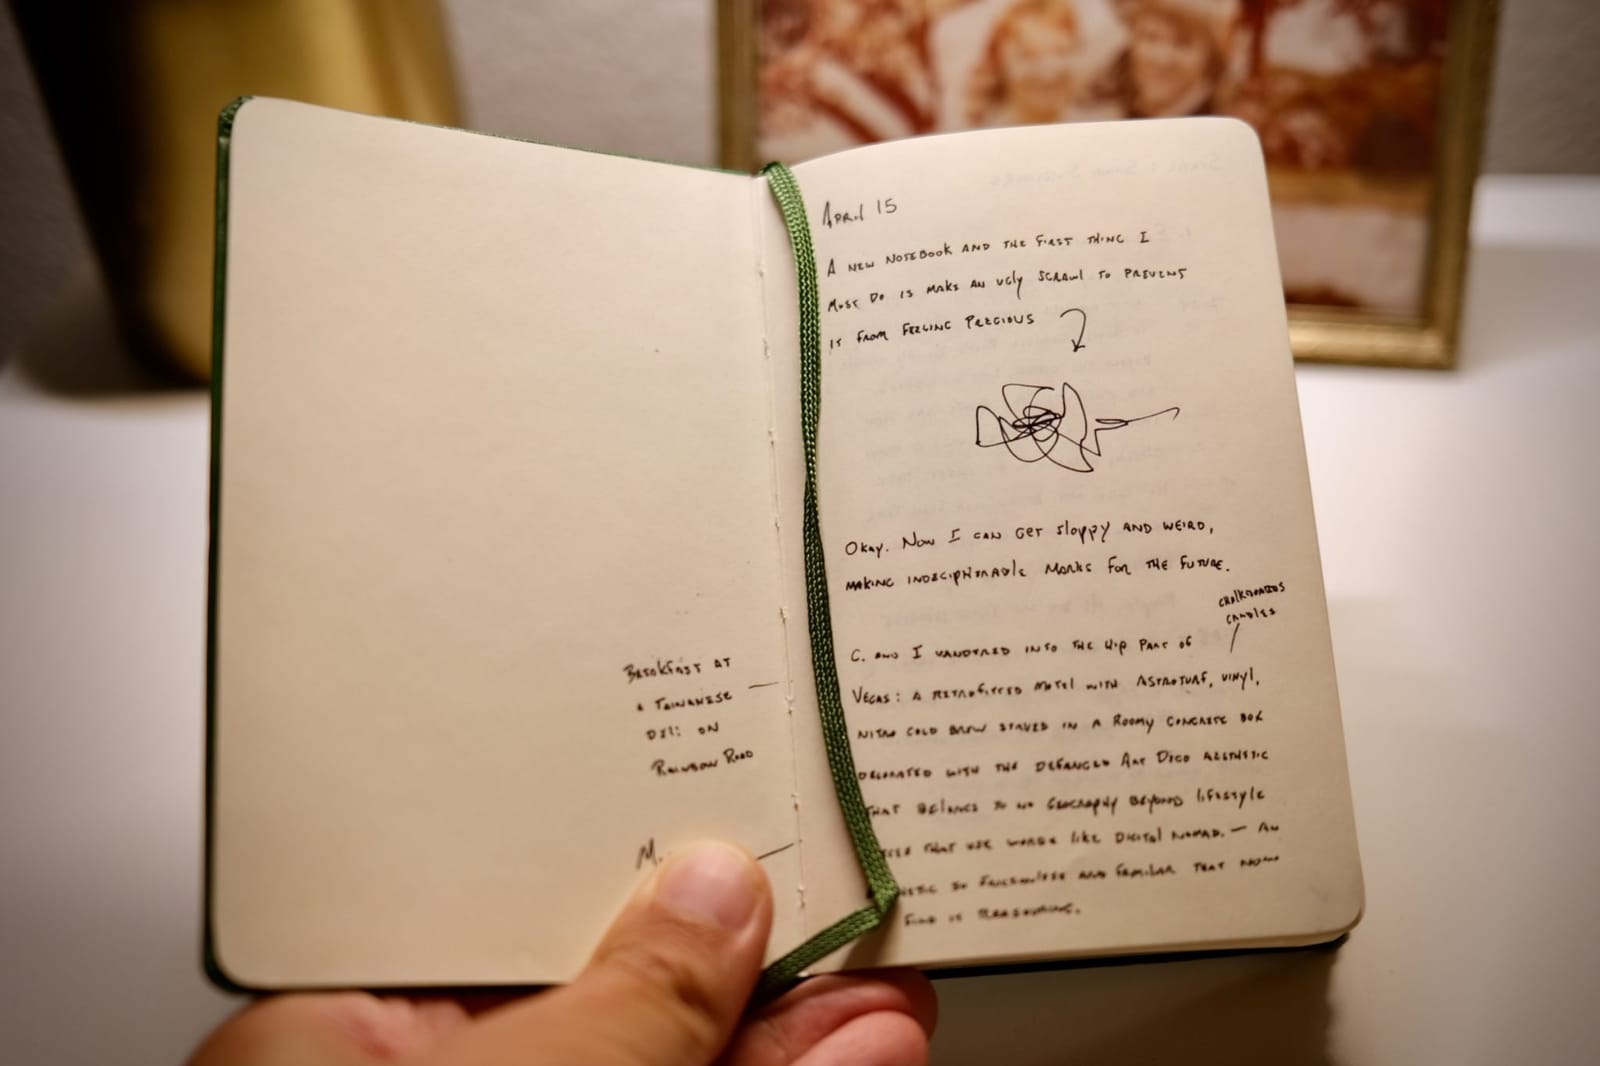 BREAKFAST AT
A TAIWANESE
DELI ON
RAINBOW ROAD
M.
APRIL 15
A NEW NOTEBOOK AND THE FIRST THING I
MUST DO IS MAKE AN UGLY SCRAWL TO PREVENT
IT FROM FEELING PRECIOUS
OKAY. NOW I CAN GET SLOPPY AND WEIRD,
MAKING INDECIPHERABLE MARKS FOR THE FUTURE.
CHALKBOARDS
CANDLES
C. AND I WANDERED INTO THE HIP PART OF
VEGAS: A RETROFITTED MOTEL WITH ASTROTURF, VINYL,
NITRO COLD BREW SERVED IN A ROOMY CONCRETE BOX
DECORATED WITH THE DEFANGED ART DECO AESTHETIC
THAT BELONGS TO NO GEOGRAPHY BEYOND LIFESTYLE
THAT USE WORDS LIKE DIGITAL NOMAD. — AN
SO FRICTIONLESS AND FAMILIAR THAT
FIND IT REASSURING.